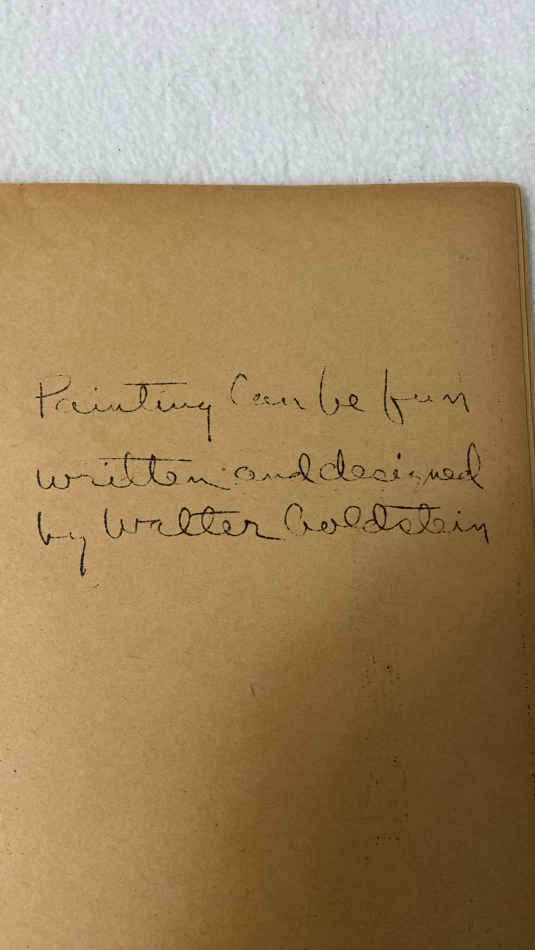 Painting Can be fun
written and designed
by Walter Goldstein